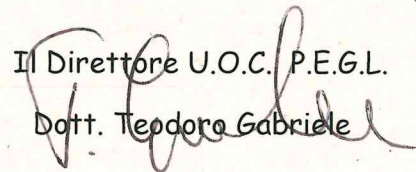 Il Direttore U.O.C. P.E.G.L.
Dott. Teodoro Gabriele